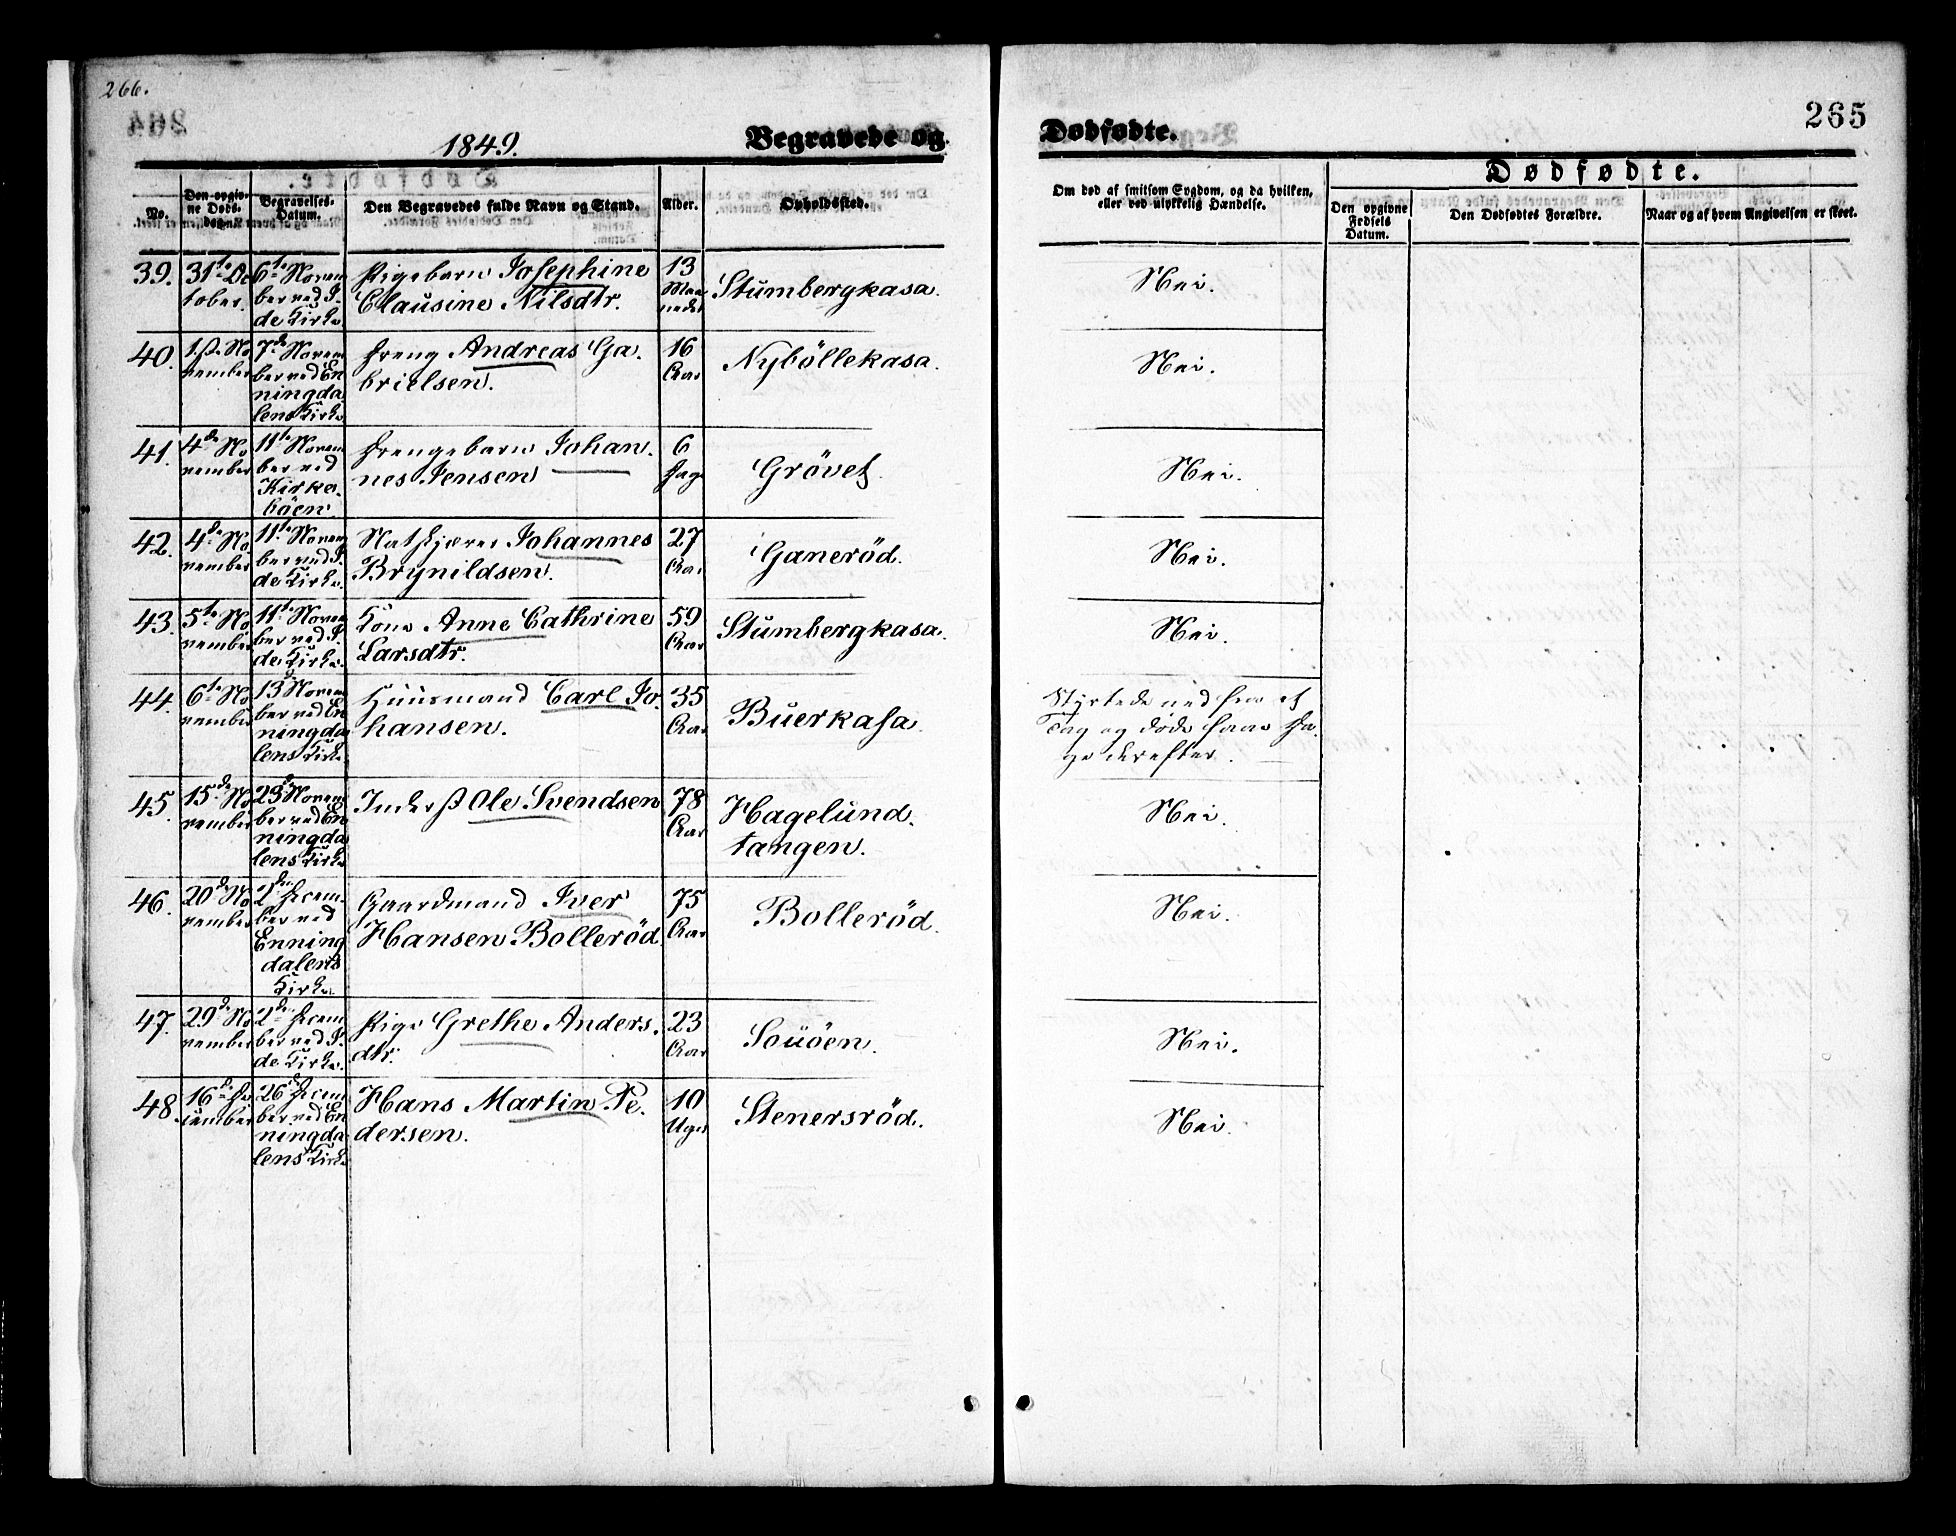 266.
265
1849.
Begravede og
Dødfødte.
No.
Den opgiv-
ne Døds-
Begravelses-
Datum.
Den Begravedes fulde Navn og Stand.
Alder.
Opholdssted.
Om død af smitsom Sygdom, og da hvilken,
eller ved ulykkelig Hændelse.
Dødfødte.
Den opgivne
Fødsels
Datum.
Den Dødfødtes Forældre.
Naar og af hvem Angivelsen er skeet.
39.
31te Oc
tober.
6te Novem
ber ved I
de Kirke.
Pigebarn Josephine
Clausine Nilsdtr.
13
Maa
neder
Stumbergkasa.
Nei.
40.
1ste No
vember
7de Novem
ber ved En
ningda
lens Kirke
Dreng Andreas Ga
brielsen.
16
Aar
Nyböllekasa.
Nei.
41.
4de No
vember
11te Novem
ber ved
Kirke
böen.
Drengebarn Johan
nes Jensen
6
Dage
Grövet.
Nei.
42.
4de No
vember
11te Novem
ber ved I
de Kirke.
Natskjærer Johannes
Brynildsen.
27
Aar
Ganeröd.
Nei.
43.
5te No
vember
11te Novem
ber ved I
de Kirke.
Kone Anne Cathrine
Larsdtr.
59
Aar
Stumbergkasa.
Nei.
44.
6te No
vember
13de Novem
ber ved En
ningda
lens Kirke
Huusmand Carl Jo
hansen.
35
Aar
Buerkasa.
Styrtede ned fra et
Tag og døde faae Da
ge derefter.
45.
15de No
vember
23de Novem
ber ved En
ningda
lens Kirke
Inderst Ole Svendsen
78
Aar
Hagelund.
tangen.
Nei.
46.
20de No
vember
2den Decem
ber ved
Enning
dalens
Kirke.
Gaardmand Iver
Hansen Bolleröd.
75
Aar
Bolleröd.
Nei.
47.
29de No
vember
2den Decem
ber ved I
de Kirke.
Pige Grethe Anders.
dtr.
23
Aar
Souöen.
Nei.
48.
16de De
cember
26de Decem
ber ved En
ningda
lens Kirke
Hans Martin Pe
dersen.
10
Uger
Stenersröd.
Nei.